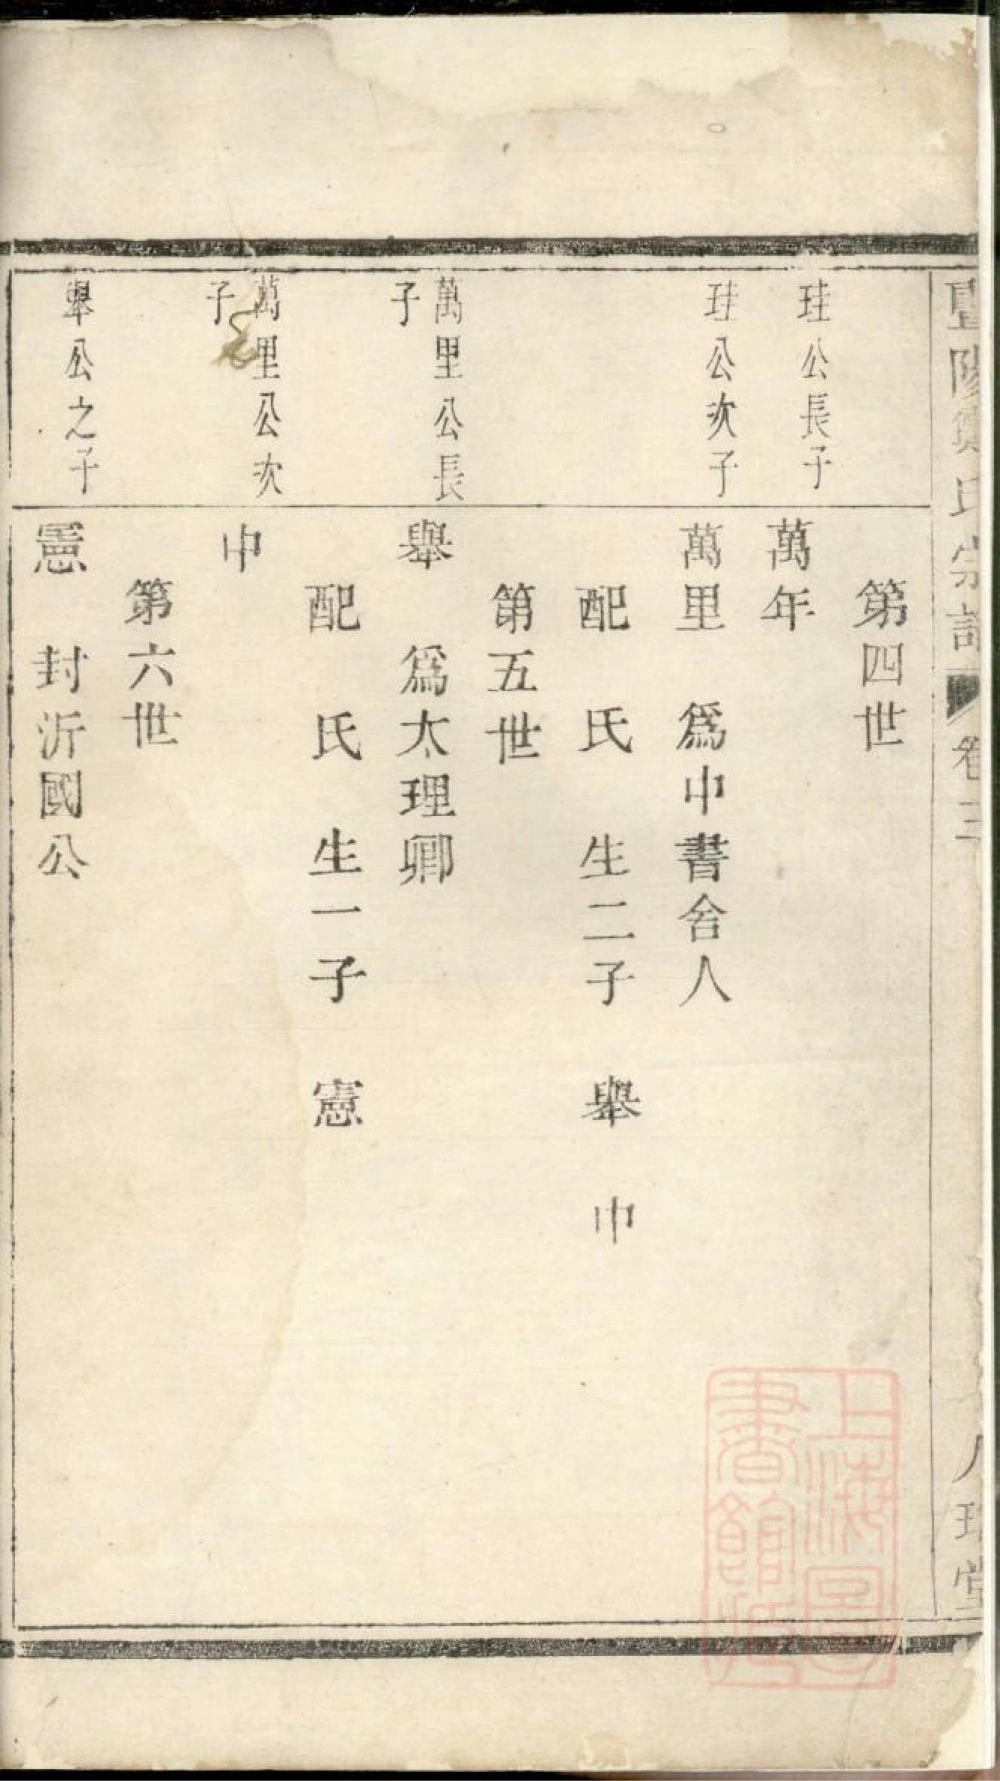 暨陽鄭氏宗譜 卷三
第四世
珪公長子
萬年
珪公次子
萬里 爲中書舍人
配 氏 生二子 舉 中
第五世
萬里公長
子
舉 爲大理卿
配 氏 生一子 憲
萬里公次
子
中
第六世
舉公之子
憲 封沂國公
上海圖
書館藏